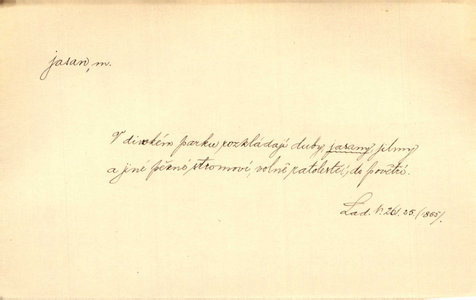 jasan, m.
V divokém parku rozkládají duby, jasany, jilmy
a jiné pěkné stromoví, volně ratolestí do povětří.
Lad. 26/ 25. (1865).